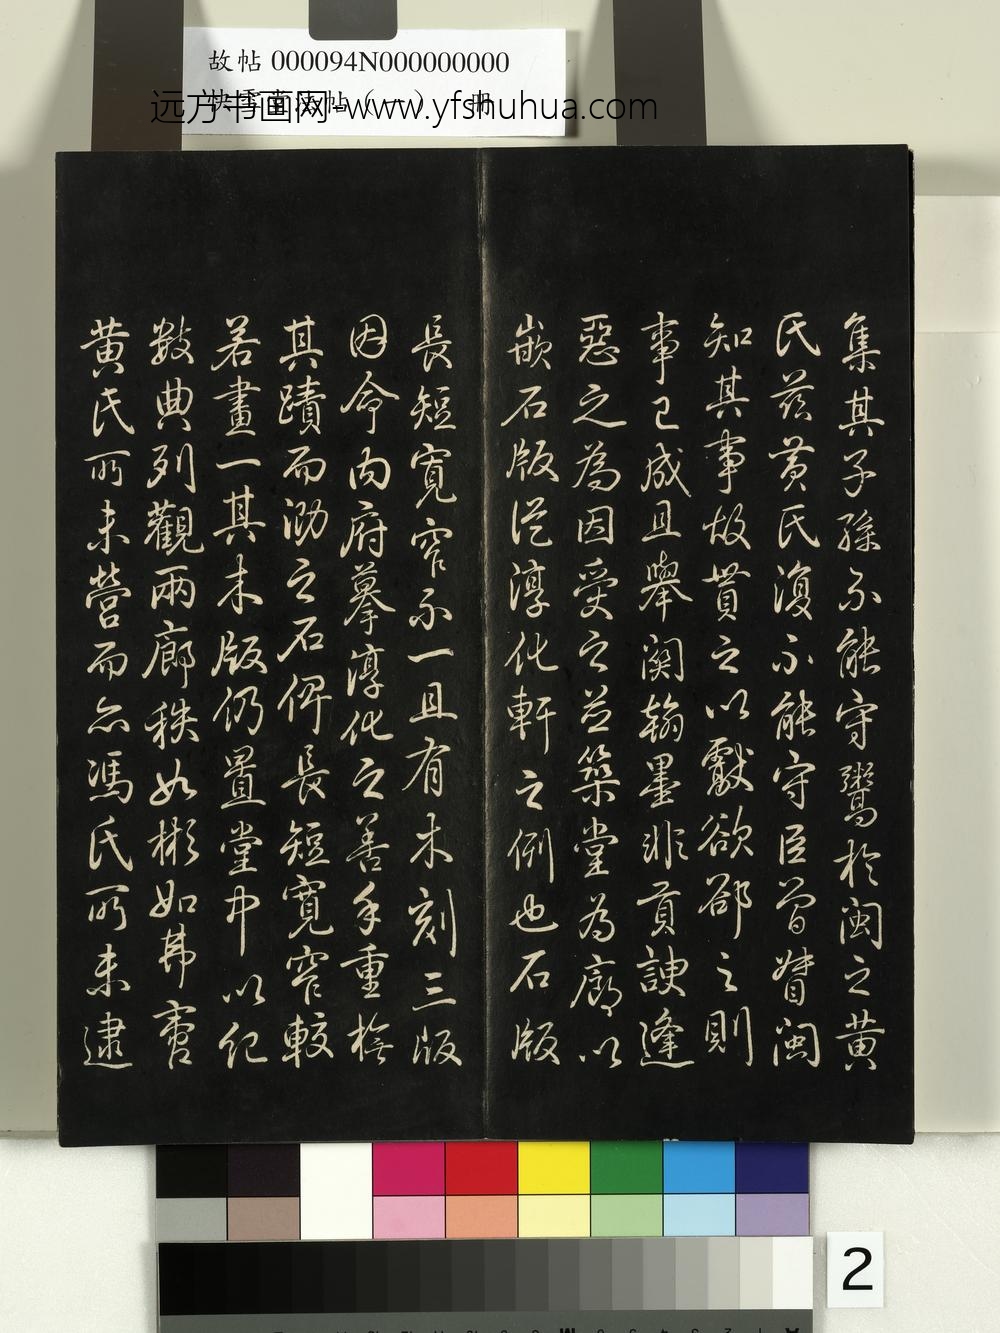 故帖 000094N000000000
快雪堂法帖（一） 册
远方书画网-www.yfshuhua.com
集其子孫不能守鬻於闽之黄
氏兹黄氏復不能守臣曾督闽
知其事故貰之以獻欲郤之則
事已成且舉関翰墨非貢諛逢
惡之為因受之並築堂為廊以
嵌石版從淳化軒之例也石版
長短寬窄不一且有木刻三版
因命内府摹淳化之善手重橅
其蹟而泐之石俾長短寬窄較
若畫一其木版仍置堂中以紀
數典列觀兩廊秩如彬如弗啻
黄氏所未營而亦馮氏所未逮
2